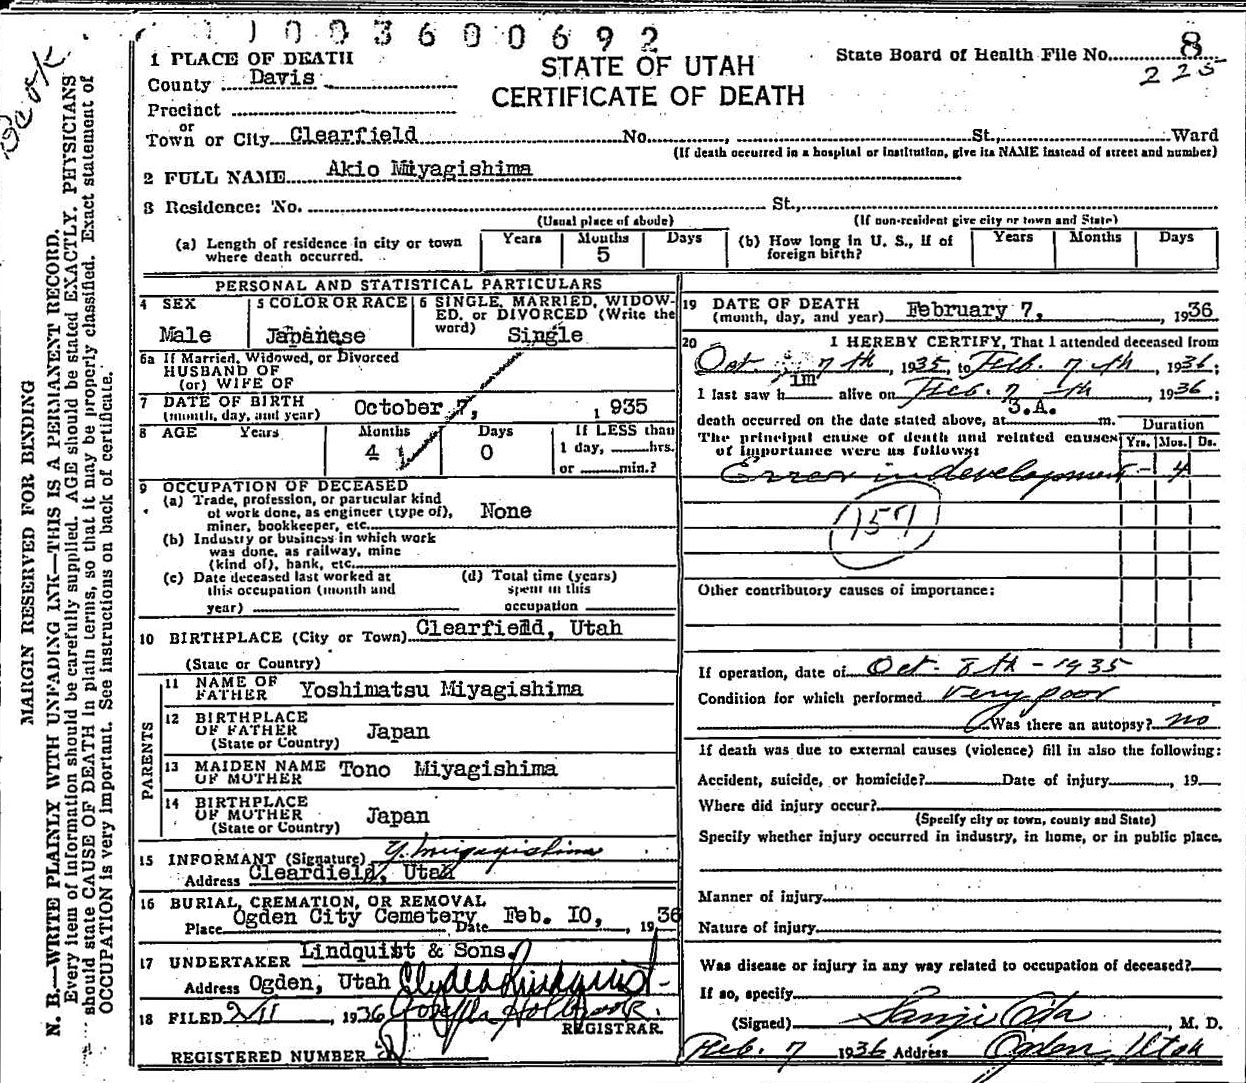 1003600692
1 PLACE OF DEATH
County Davis
Precinct
or
Town or City Clearfield No. , St., Ward
(If death occurred in a hospital or institution, give its NAME instead of street and number)
STATE OF UTAH
CERTIFICATE OF DEATH
State Board of Health File No. 8
225
2 FULL NAME Akio Miyagishima
3 Residence: No. St.,
(Usual place of abode) (If non-resident give city or town and State)
(a) Length of residence in city or town where death occurred. Years Months 5 Days
(b) How long in U. S., if of foreign birth? Years Months Days
PERSONAL AND STATISTICAL PARTICULARS
4 SEX Male
5 COLOR OR RACE Japanese
6 SINGLE, MARRIED, WIDOWED. or DIVORCED (Write the word) Single
6a If Married, Widowed, or Divorced
HUSBAND OF
(or) WIFE OF
7 DATE OF BIRTH
(month, day, and year) October 7, 1935
8 AGE Years Months 4 Days 0 If LESS than
1 day, hrs.
or min.?
9 OCCUPATION OF DECEASED
(a) Trade, profession, or particular kind
of work done, as engineer (type of), None
miner, bookkeeper, etc.
(b) Industry or business in which work
was done, as railway, mine
(kind of), bank, etc.
(c) Date deceased last worked at
this occupation (month and
year)
(d) Total time (years)
spent in this
occupation
10 BIRTHPLACE (City or Town) Clearfield, Utah
(State or Country)
PARENTS
11 NAME OF
FATHER Yoshimatsu Miyagishima
12 BIRTHPLACE
OF FATHER Japan
(State or Country)
13 MAIDEN NAME
OF MOTHER Tono Miyagishima
14 BIRTHPLACE
OF MOTHER Japan
(State or Country)
15 INFORMANT (Signature) Y. Miyagishima
Address Cleardield, Utah
16 BURIAL, CREMATION, OR REMOVAL
Place Ogden City Cemetery Date Feb. IO, 1936
17 UNDERTAKER Lindquist & Sons.
Address Ogden, Utah
18 FILED 2/11, 1936
REGISTRAR.
REGISTERED NUMBER
19 DATE OF DEATH
(month, day, and year) February 7, , 1936
20 I HEREBY CERTIFY, That I attended deceased from
Oct. 7th, 1935, to Feb. 7th, 1936;
I last saw him alive on Feb. 7th 1936;
death occurred on the date stated above, at 3.A. m.
Duration
The principal cause of death and related causes Yrs. Mos. Ds.
of importance were as follows:
Error in development - 4
157
Other contributory causes of importance:
If operation, date of Oct. 8th - 1935
Condition for which performed very poor
Was there an autopsy? no
If death was due to external causes (violence) fill in also the following:
Accident, suicide, or homicide? Date of injury , 19
Where did injury occur?
(Specify city or town, county and State)
Specify whether injury occurred in industry, in home, or in public place.
Manner of injury
Nature of injury
Was disease or injury in any way related to occupation of deceased?
If so, specify
(Signed) , M. D.
Feb. 7 1936 Address Ogden, Utah
MARGIN RESERVED FOR BINDING
N. B.—WRITE PLAINLY WITH UNFADING INK—THIS IS A PERMANENT RECORD.
Every item of information should be carefully supplied. AGE should be stated EXACTLY. PHYSICIANS
should state CAUSE OF DEATH in plain terms, so that it may be properly classified. Exact statement of
OCCUPATION is very important. See instructions on back of certificate.